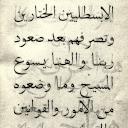 الابسطليين الختارين
ونصرفهم بعد صعود
ربنا والهنا يسوع
المسيح وما وضعوه
من الامور والقوانين